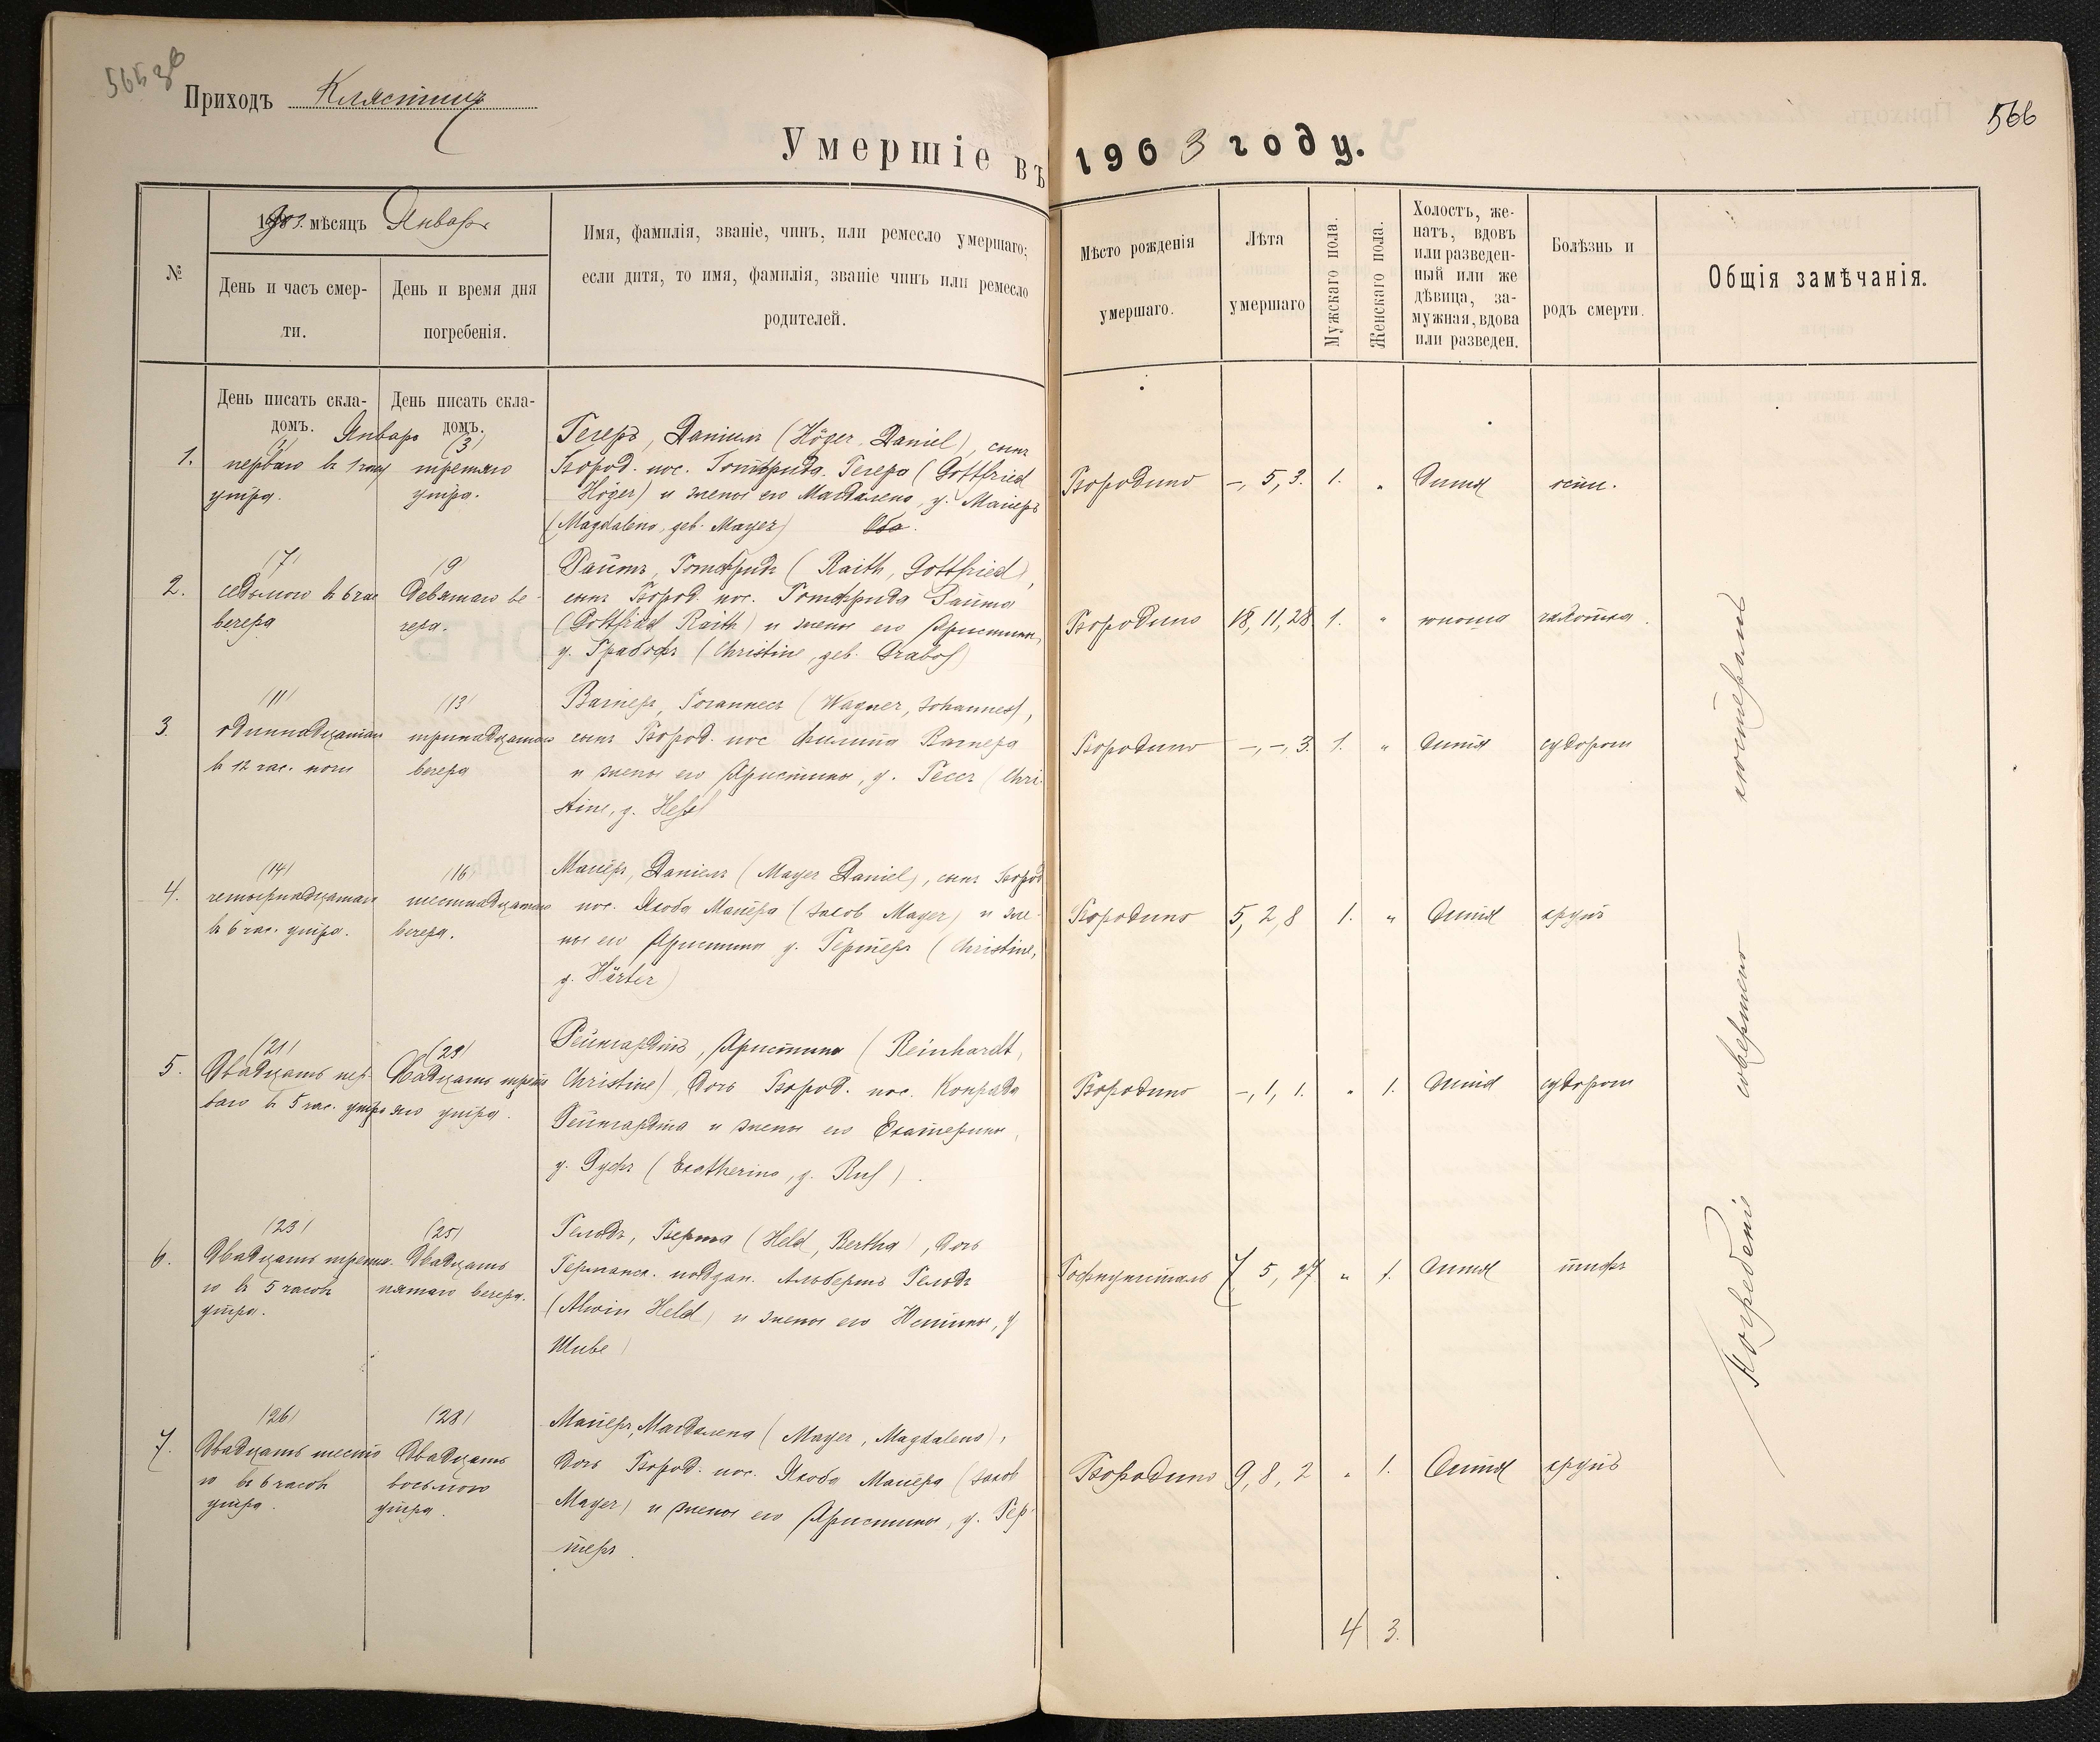 565 зв
Приходъ Клястицъ
566
Умершіе въ 1903 году.
№
1903. мѣсяцъ Январь
День и часъ смер-
ти.
День и время дня
погребенія.
Имя, фамилія, званіе, чинъ, или ремесло умершаго;
если дитя, то имя, фамилія, званіе чинъ или ремесло
родителей.
Мѣсто рожденія
умершаго.
Лѣта
умершаго
Мужскаго пола.
Женскаго пола.
Холостъ, же-
натъ, вдовъ
или разведен-
ный или же
дѣвица, за-
мужная, вдова
или разведен.
Болѣзнь и
родъ смерти.
Общія замѣчанія.
День писать скла-
домъ.
День писать скла-
домъ.
Январь
1.
/1/
перваго въ 1 часу
утра.
/3/
третяго
утра.
Гегеръ, Даніилъ (Höger, Daniel), сынъ
Бород. пос. Готфрида Гегера (Gottfried
Höger) и жены его Магдалена, у. Майеръ
(Magdalena, geb. Mayer)
Бородино
-, 5, 3.
1.
"
Дитя
2.
/7/
седьмого въ 6 час
вечера
/9/
Девятаго ве-
чера.
Райтъ, Готфридъ (Raith, Gottfried),
сынъ Бород. пос. Готфрида Райта
(Gottfried Raith) и жены его Христины,
у. Грабофъ (Christine, geb. Grabof)
Бородино
18, 11, 28
1.
"
юноша
чахотка.
3.
/11/
одиннадцатаго
въ 12 час. ночи
/13/
тринадцатаго
вечера
Вагнеръ, Іоганнесъ (Wagner, Johannes),
сынъ Бород. пос Филипа Вагнера
и жены его Христины, у. Гессъ (Chri-
stine, g. Heß)
Бородино
-, -, 3.
1.
"
Дитя
судорог
4.
/14/
четырнадцатаго
въ 6 час. утра.
/16/
шестнадцатаго
вечера.
Майеръ, Даніелъ (Mayer Daniel), сынъ Бород
пос. Якоба Майера (Jacob Mayer) и же-
ны его Христины у. Гертеръ (Christine,
g. Härter)
Бородино
5, 2, 8
1.
"
Дитя
крупъ
5.
/21/
Двадцать пер-
ваго въ 5 час. утра
/23/
Двадцать треть
яго утра.
Рейнгардтъ, Христина (Reinhardt,
Christine), дочь Бород. пос. Конрада
Рейнгардта и жены его Екатерины,
у. Руфъ (Ekatherina, g. Ruf).
Бородино
-, 1, 1.
"
1.
Дитя
судорог
6.
/23/
Двадцать третья-
го въ 5 часовъ
утра.
/25/
Двадцать
пятаго вечера.
Гельдъ, Берта (Held, Bertha), дочь
Германск. поддан. Альбертъ Гельдъ
(Alwin Held) и жены его Юстины, у
Шube)
7, 5, 27
"
1.
Дитя
тифъ
7.
/26/
Двадцать шесто
го въ 6 часовъ
утра.
/28/
Двадцать
восьмого
утра.
Майеръ, Магдалена (Mayer, Magdalena),
дочь Бород. пос. Якоба Майера (Jacob
Mayer) и жены его Христины, у. Гер-
теръ.
Бородино
9, 8, 2
"
1.
Дитя
крупъ
4
3.
Погребеніе совершено кюстерами